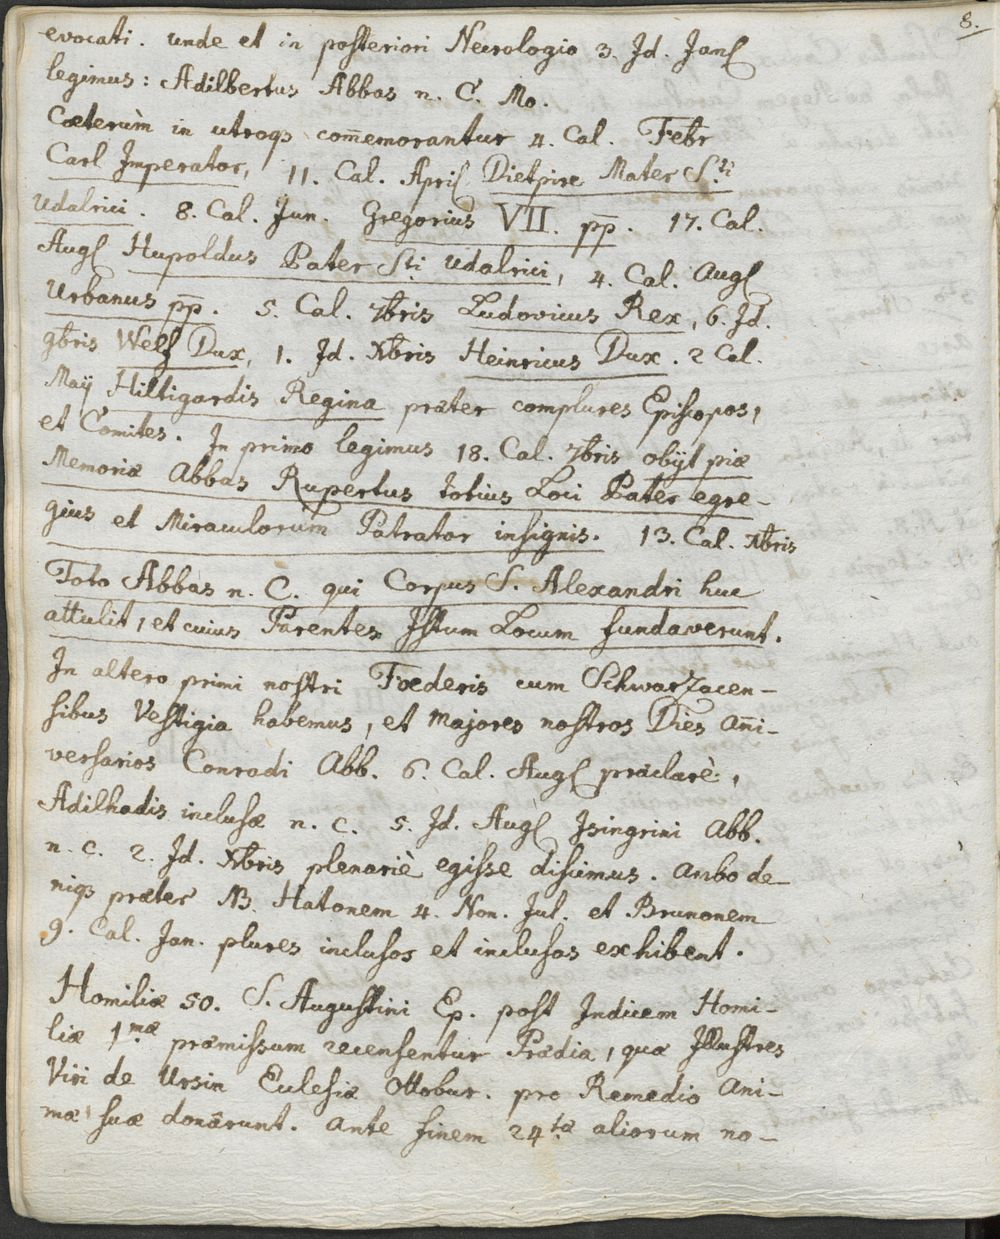 8.
evocati. unde et in posteriori Necrologio 3. Jd. Janſ
legimus: Adilbertus Abbas n. C. Mo.
Cæterùm in utroqȝ com̅emorantur 4. Cal. Febr
Carl Imperator, 11. Cal. Aprił Dietpirc Mater S.ti
Udalrici. 8. Cal. Jun. Gregorius VII. pp̅. 17. Cal.
Augſ Hupoldus Pater Sti. Udalrici, 4. Cal. Augſ
Urbanus pp̅. 5. Cal. 7bris Ludovicus Rex, 6. Jd.
9bris Welf Dux, 1. Jd. Xbris Heinricus Dux. 2 Cal.
Maÿ Hiltigardis Regina præter complures Episcopos,
et Comites. In primo legimus 18. Cal. 7bris obijt piæ
Memoriæ Abbas Rupertus totius Loci Pater egre-
gius et Miraculorum Patrator insignis. 13. Cal. Xbris
Toto Abbas n. C. qui Corpus S. Alexandri huc
attulit, et cuius Parentes Istum Locum fundaverunt.
In altero primi nostri Fœderis cum Schwarzacen-
sibus Vestigia habemus, et Majores nostros Dies An̅i-
versarios Conradi Abb. 6. Cal. Augſ præclarè,
Adilhadis inclusæ n. C. 5. Jd. Augſ Isingrini Abb.
n. C. 2. Jd. Xbris plenariè egisse discimus. Ambo de-
niqȝ præter NB. Hatonem 4. Non. Jul. et Brunonem
9. Cal. Jan. plures inclusos et inclusas exhibent.
Homiliæ 50. S. Augustini Ep. post Indicem Homi-
liæ 1mæ præmissum recensentur Prædia, quæ Illustres
Viri de Ursin Ecclesiæ Ottobur. pro Remedio Ani-
mæ suæ donârunt. Ante finem 24tæ aliorum no-